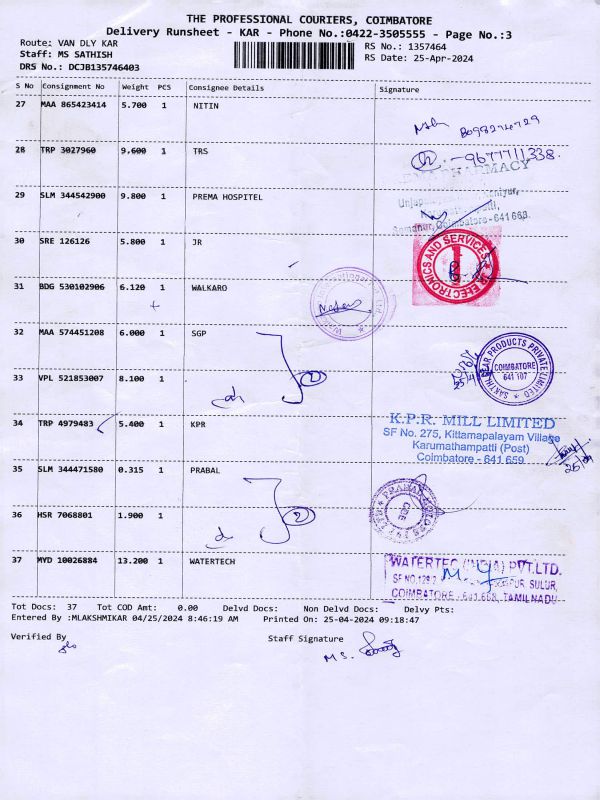 THE PROFESSIONAL COURIERS, COIMBATORE
Delivery Runsheet - KAR - Phone No.:0422-3505555 - Page No.:3
Route: VAN DLY KAR
RS No.: 1357464
Staff: MS SATHISH
RS Date: 25-Apr-2024
DRS No.: DCJB135746403
S No Consignment No Weight PCS Consignee Details Signature
27 MAA 865423414 5.700 1 NITIN
8098274729
28 TRP 3027960 9.600 1 TRS
9677711338
PHARMACY
29 SLM 344542900 9.800 1 PREMA HOSPITEL
Coimbatore - 641 668.
30 SRE 126126 5.800 1 JR
ELECTRONICS AND SERVICES
31 BDG 530102906 6.120 1 WALKARO
32 MAA 574451208 6.000 1 SGP
PRODUCTS PRIVATE LIMITED
COIMBATORE
641 107
33 VPL 521853007 8.100 1
2
34 TRP 4979483 5.400 1 KPR
K.P.R. MILL LIMITED
SF No. 275, Kittamapalayam Village
Karumathampatti (Post)
Coimbatore - 641 659
35 SLM 344471580 0.315 1 PRABAL
36 HSR 7068801 1.900 1
2
CBE
37 MYD 10026884 13.200 1 WATERTECH
WATERTEC (INDIA) PVT.LTD.
SULUR,
COIMBATORE - 641 668, TAMILNADU
Tot Docs: 37 Tot COD Amt: 0.00 Delvd Docs: Non Delvd Docs: Delvy Pts:
Entered By :MLAKSHMIKAR 04/25/2024 8:46:19 AM Printed On: 25-04-2024 09:18:47
Verified By
Staff Signature
M S.